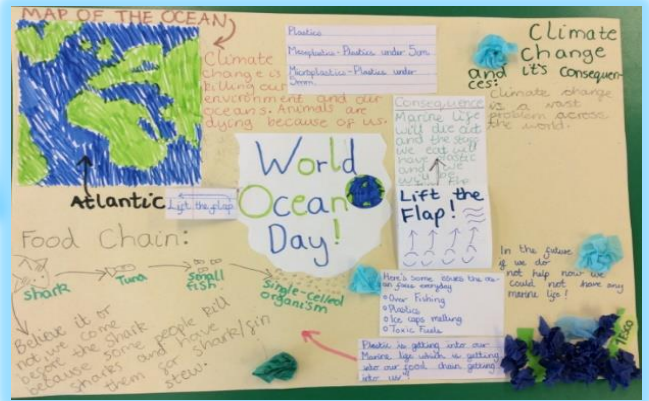 MAP OF THE OCEAN
Climate
change is
killing our
environment and our
oceans. Animals are
dying because of us.
Plastics
Macroplastic - Plastics under 5cm
Microplastics - Plastics under
5mm.
Climate
Change
and it's consequen-
ces:
climate change
is a vast
problem across
the world.
Consequence
Marine Life
will die out
and the
we eat will
have plastic
and we
Lift the
Flap!
Atlantic
Lift the flap
World
Ocean
Day!
Food Chain:
Shark
Tuna
Small
fish.
Single-celled
organism
Believe it or
not we come
before the shark
because some people kill
sharks and have
them for shark/fin
stew.
Here's some issues the oc-
ean face everyday
Over Fishing
Plastics
Ice caps melting
Toxic Fuels
In the future
if we do
not help now we
could not have any
marine life!
Plastic is getting into our
Marine life which is getting
into our food chain getting
into us!